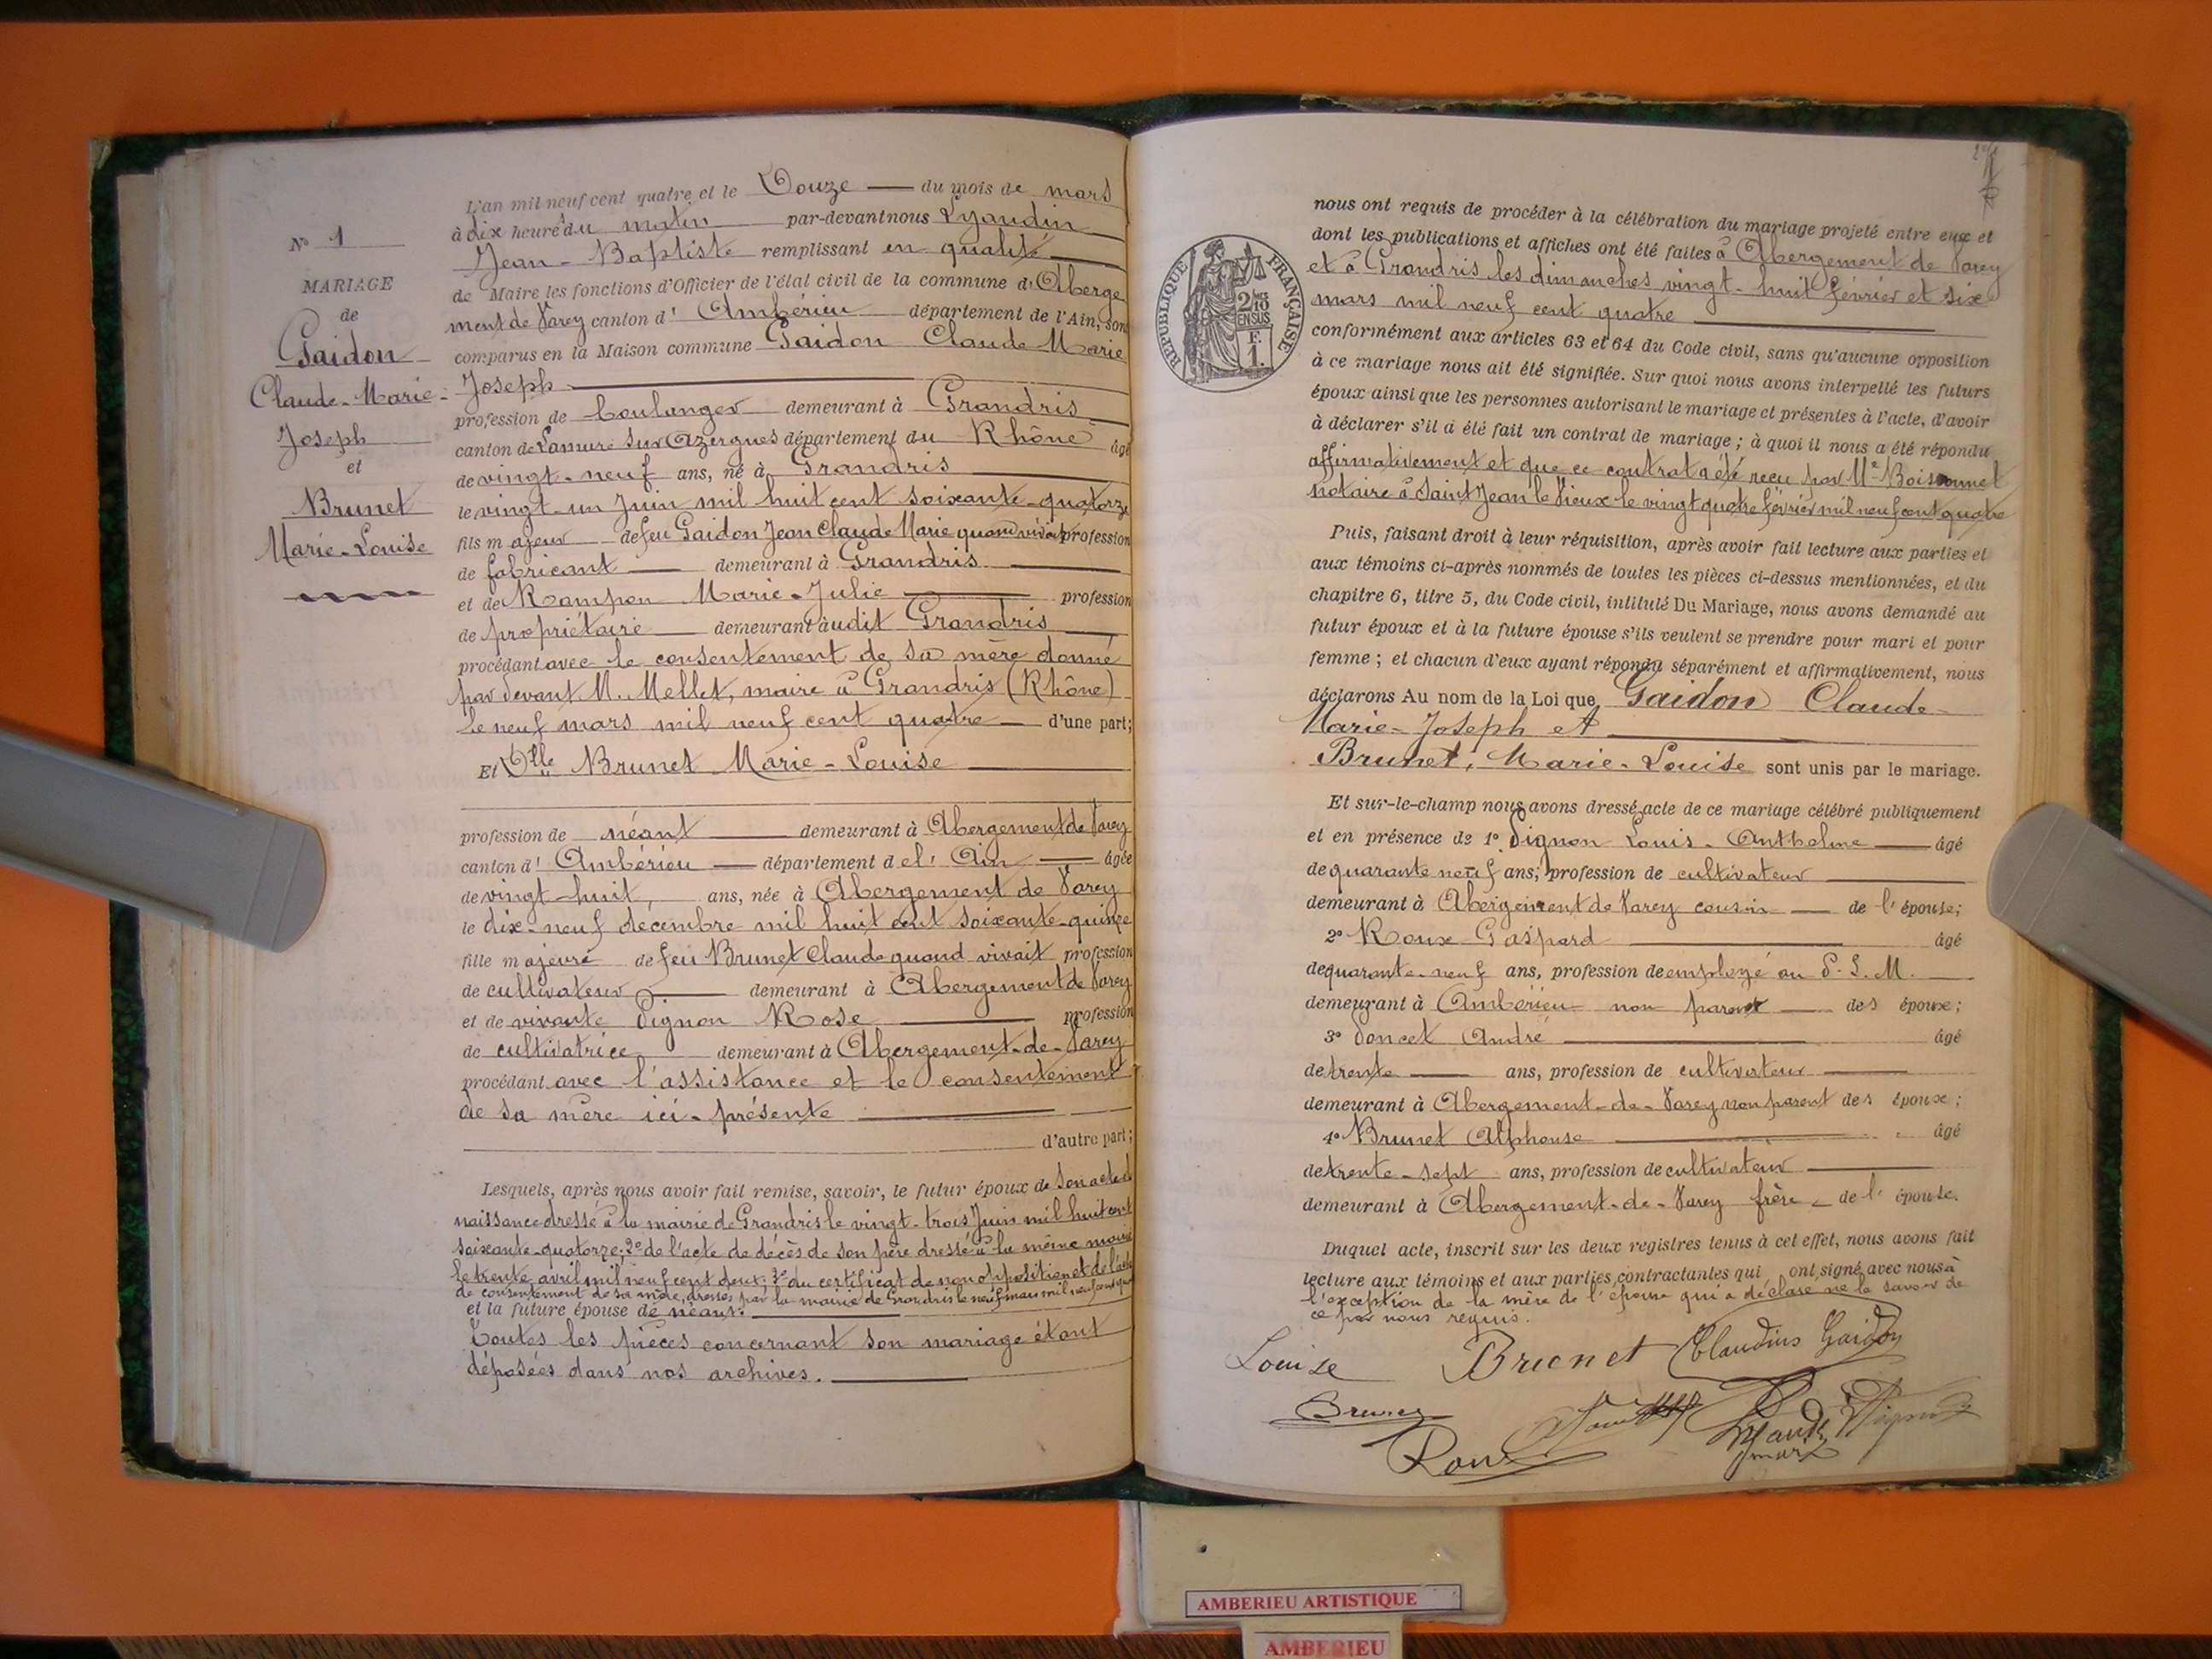 N° 1
MARIAGE
de
Gaidon
Claude-Marie-
Joseph
et
Brunet
Marie-Louise
L'an mil neuf cent quatre et le Douze du mois de mars
à dix heures du matin par-devant nous Lyaudin
Jean-Baptiste remplissant en qualité
de Maire les fonctions d'Officier de l'état civil de la commune d'Aberge
ment de Varey canton d' Ambérieu département de l'Ain, son
comparus en la Maison commune Gaidon Claude Marie
Joseph
profession de boulanger demeurant à Grandris
canton de Lamure sur Azergues département du Rhône âgé
de vingt-neuf ans, né à Grandris
le vingt-un Juin mil huit cent soixante-quatorze
fils majeur de feu Gaidon Jean Claude Marie quand vivait profession
de fabricant demeurant à Grandris
et de Rampon Marie-Julie profession
de propriétaire demeurant àudit Grandris
procédant avec le consentement de sa mère donné
par devant M. Mellet, maire à Grandris (Rhône)
le neuf mars mil neuf cent quatre d'une part;
Et Dlle Brunet Marie-Louise
profession de néant demeurant à Abergement de Varey
canton d' Ambérieu département de l' Ain âgée
de vingt-huit, ans, née à Abergement de Varey
le dix-neuf decembre mil huit cent soixante-quinze
fille majeure de feu Brunet Claude quand vivait profession
de cultivateur demeurant à Abergement de Varey
et de vivante Dignon Rose profession
de cultivatrice demeurant à Abergement-de-Varey
procédant avec l'assistance et le consentement
de sa mère ici-présente
d'autre part;
Lesquels, après nous avoir fait remise, savoir, le futur époux de son acte de
naissance dressé à la mairie de Grandris le vingt-trois Juin mil huit cent
soixante-quatorze; 2° de l'acte de décès de son père dressé à la même mairie
le trente avril mil neuf cent deux; 3° du certificat de non opposition et de l'acte
de consentement de sa mère, dressés par la mairie de Grandris le neuf mars mil neuf cent quatre
et la future épouse de néant.
Toutes les pièces concernant son mariage étant
déposées dans nos archives.
nous ont requis de procéder à la célébration du mariage projeté entre eux et
dont les publications et affiches ont été faites à Abergement de Varey
et à Grandris les dimanches vingt-huit février et six
mars mil neuf cent quatre
conformément aux articles 63 et 64 du Code civil, sans qu'aucune opposition
à ce mariage nous ait été signifiée. Sur quoi nous avons interpellé les futurs
époux ainsi que les personnes autorisant le mariage et présentes à l'acte, d'avoir
à déclarer s'il a été fait un contrat de mariage; à quoi il nous a été répondu
affirmativement et que ce contrat a été reçu par Me Boissonnet
notaire à Saint Jean le Vieux le vingt quatre février mil neuf cent quatre
Puis, faisant droit à leur réquisition, après avoir fait lecture aux parties et
aux témoins ci-après nommés de toutes les pièces ci-dessus mentionnées, et du
chapitre 6, titre 5, du Code civil, intitulé Du Mariage, nous avons demandé au
futur époux et à la future épouse s'ils veulent se prendre pour mari et pour
femme; et chacun d'eux ayant répondu séparément et affirmativement, nous
déclarons Au nom de la Loi que Gaidon Claude-
Marie-Joseph et
Brunet, Marie-Louise sont unis par le mariage.
Et sur-le-champ nous avons dressé acte de ce mariage célébré publiquement
et en présence de 1° Dignon Louis-Anthelme âgé
de quarante neuf ans, profession de cultivateur
demeurant à Abergement de Varey cousin de l'épouse;
2° Roux Gaspard âgé
de quarante-neuf ans, profession de employé au P.L.M.
demeurant à Ambérieu non parent des époux;
3° Doncet André âgé
de trente ans, profession de cultivateur
demeurant à Abergement-de-Varey non parent des époux;
4° Brunet Alphonse âgé
de trente-sept ans, profession de cultivateur
demeurant à Abergement-de-Varey frère de l' épouse.
Duquel acte, inscrit sur les deux registres tenus à cet effet, nous avons fait
lecture aux témoins et aux parties contractantes qui ont signé avec nous à
l'exception de la mère de l'épouse qui a déclaré ne le savoir de
ce par nous requis.
Louise Brunet Claudius Gaidon
Brunet
Roux
REPUBLIQUE FRANÇAISE
2/10
EN SUS
F.
1.
AMBERIEU ARTISTIQUE
AMBERIEU